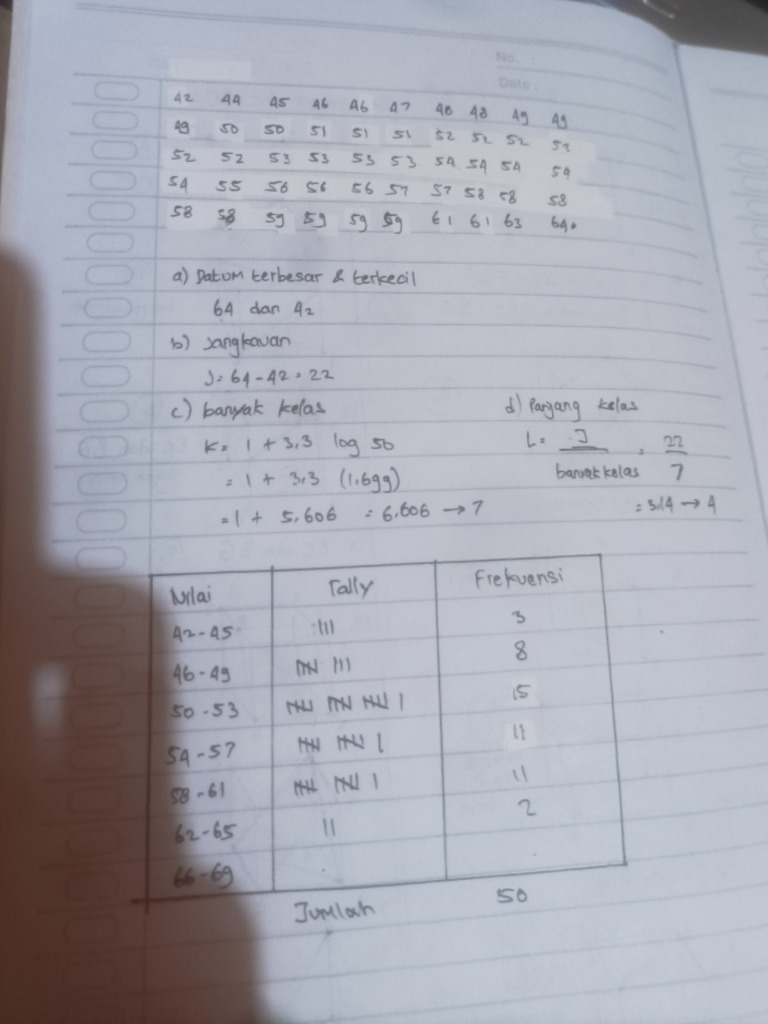 No. :
Date :
42 44 45 46 46 47 48 48 49 49
49 50 50 51 51 51 52 52 52 52
52 52 53 53 53 53 54 54 54 54
54 55 56 56 56 57 57 58 58 58
58 58 59 59 59 59 61 61 63 64.
a) Datum terbesar & terkecil
64 dan 42
b) Jangkauan
J = 64 - 42 = 22
c) banyak kelas
K = 1 + 3,3 log 50
= 1 + 3,3 (1,699)
= 1 + 5,606 = 6,606 → 7
d) Panjang kelas
L = J / banyak kelas = 22 / 7
= 3,14 → 4
Nilai Tally Frekuensi
42-45 ||| 3
46-49 |||| ||| 8
50-53 |||| |||| |||| | 15
54-57 |||| |||| | 11
58-61 |||| |||| | 11
62-65 || 2
66-69
Jumlah 50